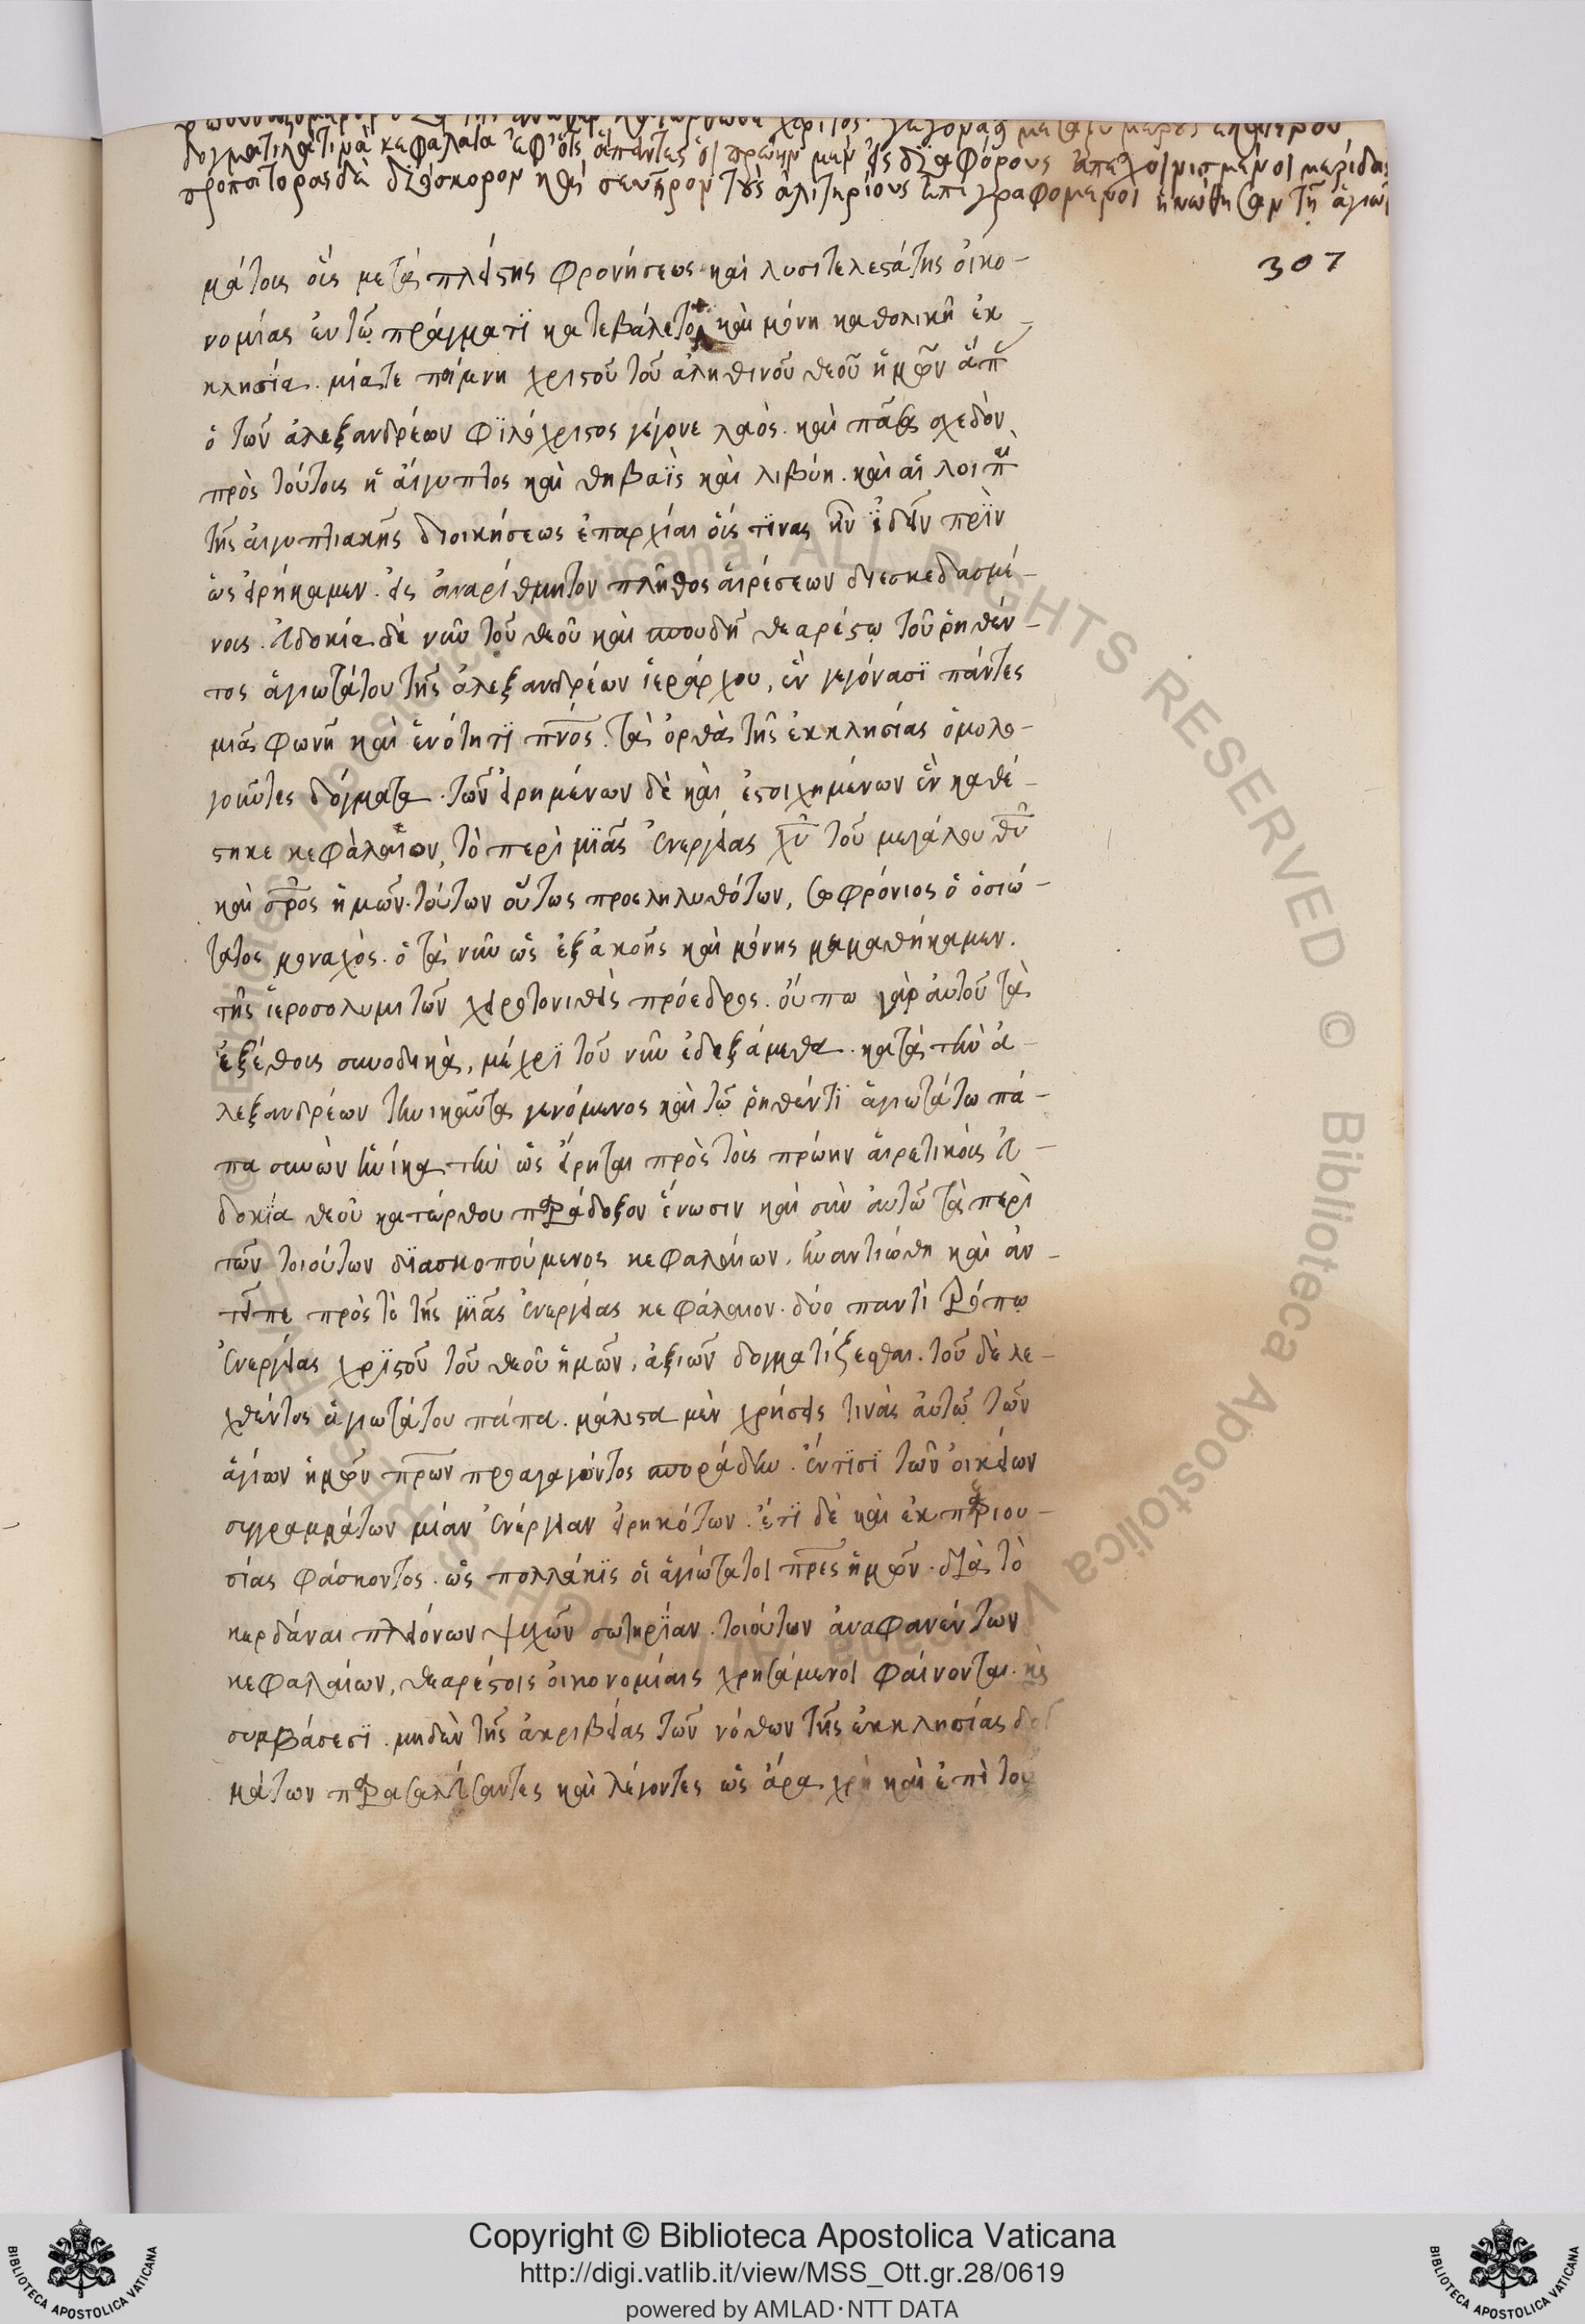 δογματικά τινα κεφάλαια ἐφ' οἷς ἅπαντες οἱ πρώην μὲν εἰς διαφόρους ἀπεσχοινισμένοι μερίδας
προπάτορας δὲ διόσκορον καὶ σευῆρον τοὺς ἀλιτηρίους ἐπιγραφόμενοι ἡνώθησαν τῇ ἁγιω
307
μάτοις οἷς μετὰ πλείστης φρονήσεως καὶ λυσιτελεστάτης οἰκο-
νομίας ἐν τῷ πράγματι κατεβάλετο καὶ μόνη καθολικὴ ἐκ-
κλησία. μία τε ποίμνη χριστοῦ τοῦ ἀληθινοῦ θεοῦ ἡμῶν ἅπ
ὁ τῶν ἀλεξανδρέων φιλόχριστος γέγονε λαός. καὶ πᾶσα σχεδὸν
πρὸς τούτοις ἡ αἴγυπτος καὶ θηβαῒς καὶ λιβύη. καὶ αἱ λοιπαὶ
τῆς αἰγυπτιακῆς διοικήσεως ἐπαρχίαι οἵς τινας ἦν ἰδεῖν πρὶν
ὡς εἰρήκαμεν. εἰς ἀναρίθμητον πλῆθος αἱρέσεων διεσκεδασμέ-
νοις. εὐδοκία δὲ νῦν τοῦ θεοῦ καὶ σπουδῇ θεαρέστῳ τοῦ ῥηθέν-
τος ἁγιωτάτου τῆς ἀλεξανδρέων ἱεράρχου, ἓν γεγόνασι πάντες
μιᾷ φωνῇ καὶ ἑνότητι πνος. τὰ ὀρθὰ τῆς ἐκκλησίας ὁμολο-
γοῦντες δόγματα. τῶν εἰρημένων δὲ καὶ ἐστοιχημένων ἓν καθέ-
στηκε κεφάλαιον, τὸ περὶ μιᾶς ἐνεργείας χυ τοῦ μεγάλου θυ
καὶ σρος ἡμῶν. τούτων οὕτως προεληλυθότων, σωφρόνιος ὁ ὁσιώ-
τατος μοναχὸς. ὁ τὰ νῦν ὡς ἐξ ἀκοῆς καὶ μόνης μεμαθήκαμεν.
τῆς ἱεροσολυμιτῶν χειροτονηθεὶς πρόεδρος. οὔπω γὰρ αὐτοῦ τὰ
ἐξ ἔθους συνοδικὰ, μέχρι τοῦ νῦν ἐδεξάμεθα. κατὰ τὴν ἀ-
λεξανδρέων τηνικαῦτα γενόμενος καὶ τῷ ῥηθέντι ἁγιωτάτω πά-
πα συνὼν ἡνίκα τὴν ὡς εἴρηται πρὸς τοὺς πρώην αἱρετικοὺς εὐ-
δοκία θεοῦ κατώρθου παράδοξον ἕνωσιν καὶ σὺν αὐτῷ τὰ περὶ
τῶν τοιούτων διασκοπούμενος κεφαλαίων, ἠναντιώθη καὶ ἀν-
τεῖπε πρὸς τὸ τῆς μιᾶς ἐνεργείας κεφάλαιον. δύο παντὶ τρόπῳ
ἐνεργείας χριστοῦ τοῦ θεοῦ ἡμῶν, ἀξιῶν δογματίζεσθαι. τοῦ δὲ λε-
χθέντος ἁγιωτάτου πάπα. μάλιστα μὲν χρήσεις τινὰς αὐτῷ τῶν
ἁγίων ἡμῶν πρων προαγαγόντος σποράδην. ἔν τισι τῶν οἰκείων
συγγραμμάτων μίαν ἐνέργειαν εἰρηκότων. ἔτι δὲ καὶ ἐκ περιου-
σίας φάσκοντος. ὡς πολλάκις οἱ ἁγιώτατοι πρες ἡμῶν. διὰ τὸ
κερδάναι πλειόνων ψυχῶν σωτηρίαν. τοιούτων ἀναφανέντων
κεφαλαίων, θεαρέστοις οἰκονομίαις χρησάμενοι φαίνονται. καὶ
συμβάσεσι. μηδὲν τῆς ἀκριβείας τῶν νόθων τῆς ἐκκλησίας δογ
μάτων παρασαλεύσαντες καὶ λέγοντες ὡς ἄρα χρὴ καὶ ἐπὶ τοῦ
© Biblioteca Apostolica Vaticana ALL RIGHTS RESERVED
Copyright © Biblioteca Apostolica Vaticana
http://digi.vatlib.it/view/MSS_Ott.gr.28/0619
powered by AMLAD·NTT DATA
BIBLIOTECA APOSTOLICA VATICANA
BIBLIOTECA APOSTOLICA VATICANA